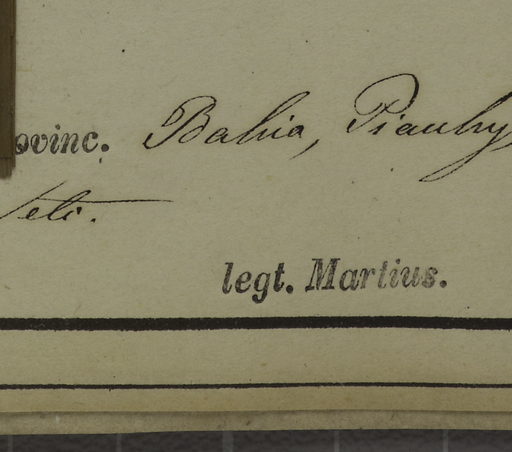 ovinc. Bahia, Piauhy,
legt. Martius.